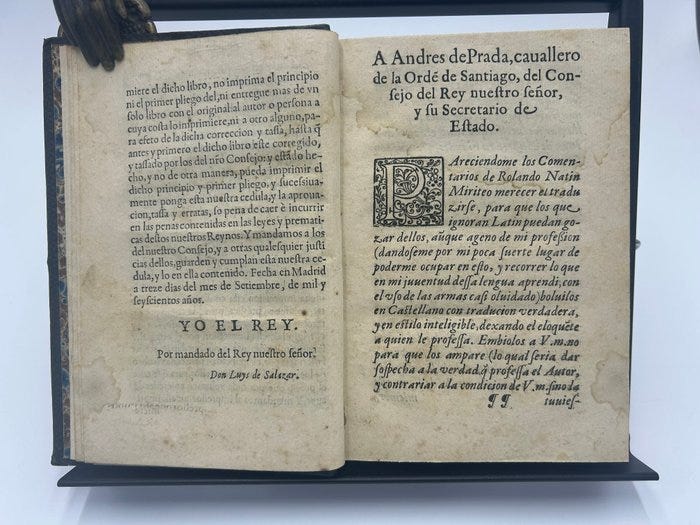 miere el dicho libro, no imprima el principio
ni el primer pliego del, ni entregue mas de vn
solo libro con el original al autor o persona a
cuya costa lo imprimiere, ni a otro alguno, pa-
ra efeto de la dicha correccion y tassa, hasta q̃
antes y primero el dicho libro este corregido,
y tassado por los del nr̃o Consejo: y estãdo he-
cho, y no de otra manera, pueda imprimir el
dicho principio y primer pliego, y sucessiua-
mente ponga esta nuestra cedula, y la aproua-
cion, tassa y erratas, so pena de caer e incurrir
en las penas contenidas en las leyes y prematicas
destos nuestros Reynos. Y mandamos a los
del nuestro Consejo, y a otras qualesquier justi
cias dellos, guarden y cumplan esta nuestra ce
dula, y lo en ella contenido. Fecha en Madrid
a treze dias del mes de Setiembre, de mil y
seyscientos años.
YO EL REY.
Por mandado del Rey nuestro señor.
Don Luys de Salazar.
A Andres de Prada, cauallero
de la Ordẽ de Santiago, del Con-
sejo del Rey nuestro señor,
y su Secretario de
Estado.
PAreciendome los Comen-
tarios de Rolando Natin
Miriteo merecer el tradu
zirse, para que los que
ignoran Latin puedan go-
zar dellos, aũque ageno de mi profession
(dandoseme por mi poca suerte lugar de
poderme ocupar en esto, y recorrer lo que
en mi juuentud dessa lengua aprendi, con
el vso de las armas casi oluidado) boluilos
en Castellano con traducion verdadera,
y en estilo inteligible, dexando el eloquẽte
a quien le professa. Embiolos a V.m. no
para que los ampare (lo qual seria dar
sospecha a la verdad q̃ professa el Autor,
y contrariar a la condicion de V.m. sino da
¶¶ tuuies-